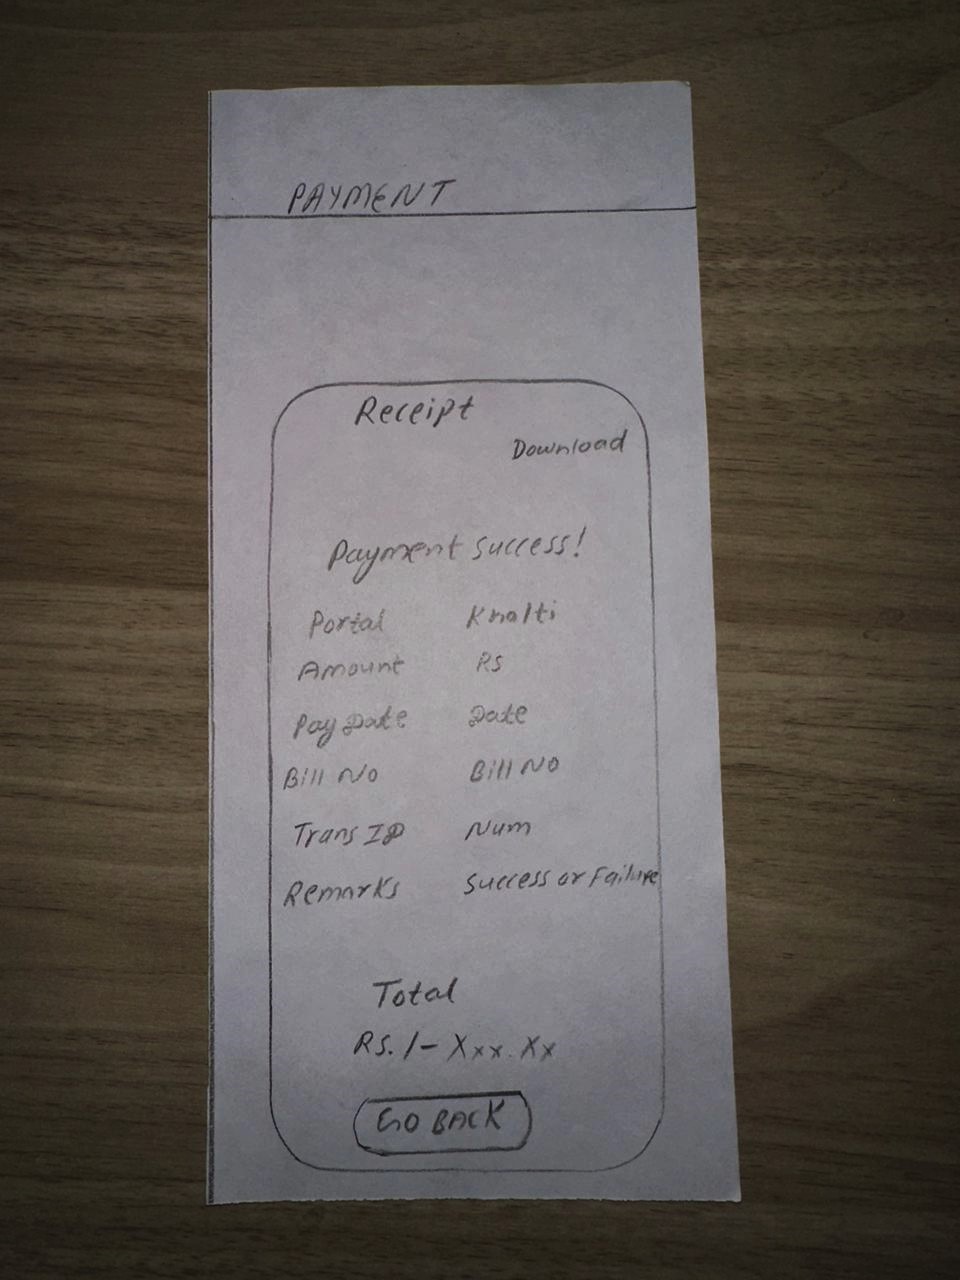 PAYMENT
Receipt
Download
Payment success!
Portal Khalti
Amount Rs
Pay Date Date
Bill No Bill No
Trans ID Num
Remarks Success or Failure
Total
RS. /- Xxx.Xx
GO BACK